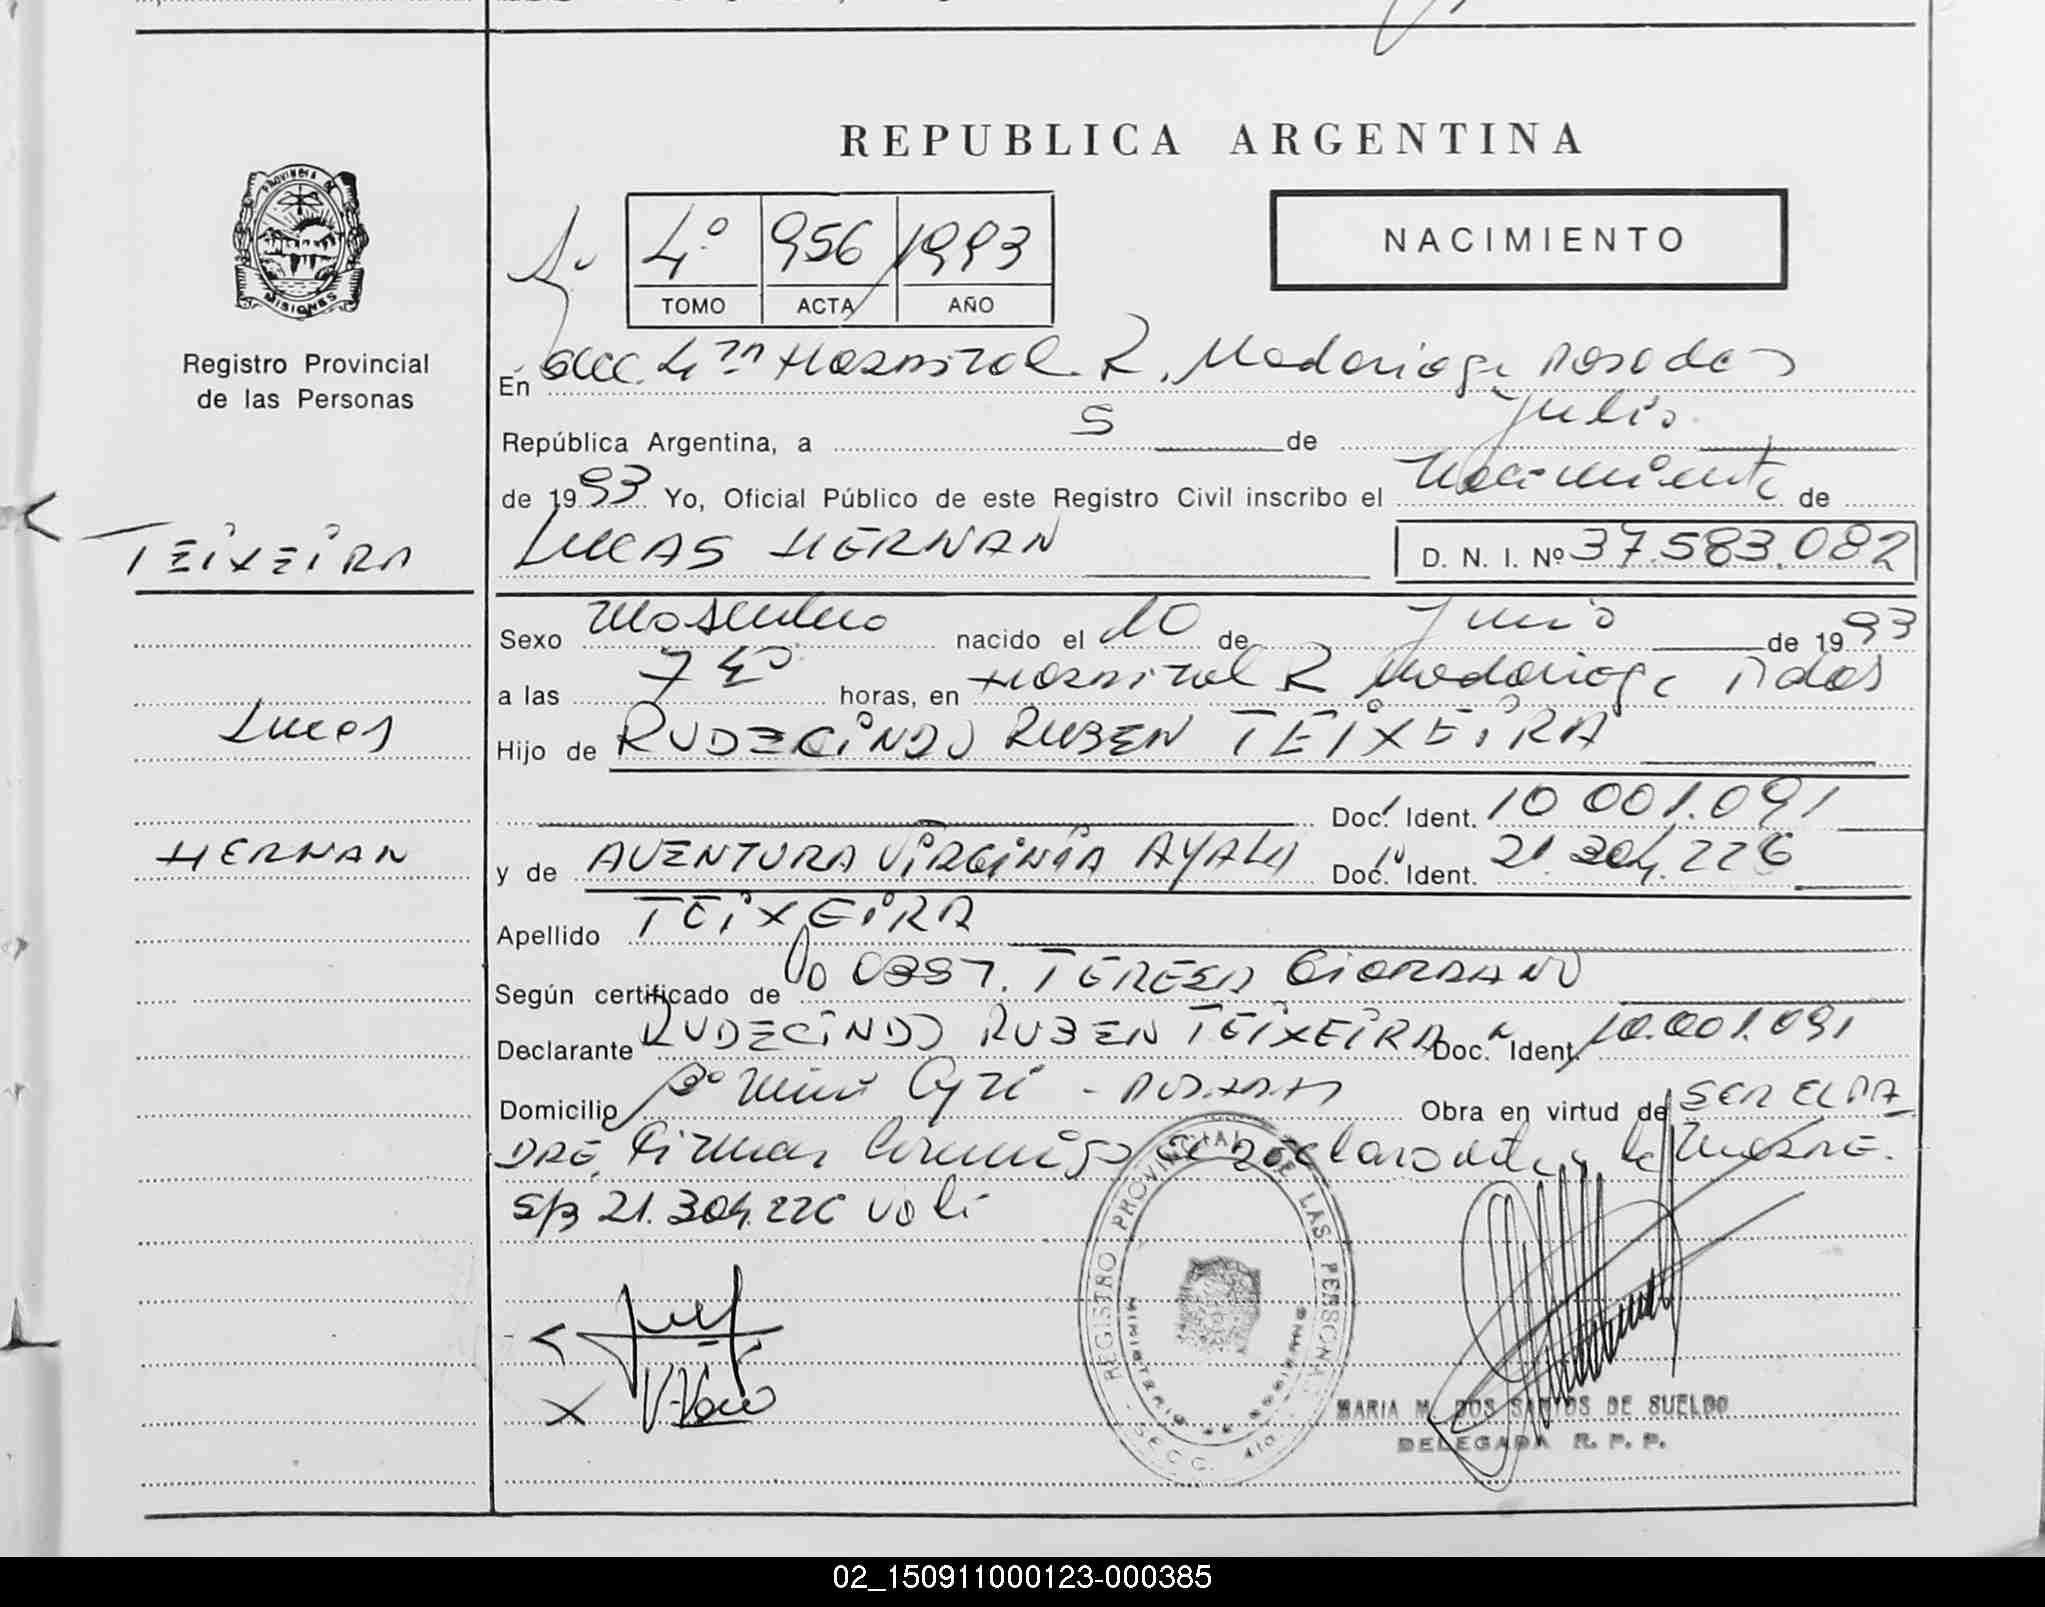 REPUBLICA ARGENTINA
PROVINCIA DE
MISIONES
4º 956 1993
TOMO ACTA AÑO
NACIMIENTO
Registro Provincial
de las Personas
En Secc. 4ta Hospital R. Madariaga Posadas
República Argentina, a 5 de Julio
de 1993 Yo, Oficial Público de este Registro Civil inscribo el Nacimiento de
TEIXEIRA
LUCAS HERNAN D. N. I. Nº 37.583.082
Sexo Masculino nacido el 10 de Junio de 1993
a las 7 horas, en Hospital R Madariaga Pdas
Lucas
Hijo de RUDECINDO RUBEN TEIXEIRA
Doc. Ident. 10 001.091
HERNAN
y de AVENTURA VIRGINIA AYALA Doc. Ident. 21.304.226
Apellido TEIXEIRA
Según certificado de Obst. TERESA GIORDANO
Declarante RUDECINDO RUBEN TEIXEIRA Doc. Ident. 10.001.091
Domicilio Bº Obra en virtud de SER EL PA
DRE. Firman conmigo el declarante y la MADRE.
S/B 21.304.226 vale
REGISTRO PROVINCIAL DE LAS PERSONAS
MINISTERIO
MISIONES
SECC. 4ta.
MARIA M. DOS SANTOS DE SUELDO
DELEGADA R. P. P.
02_150911000123-000385